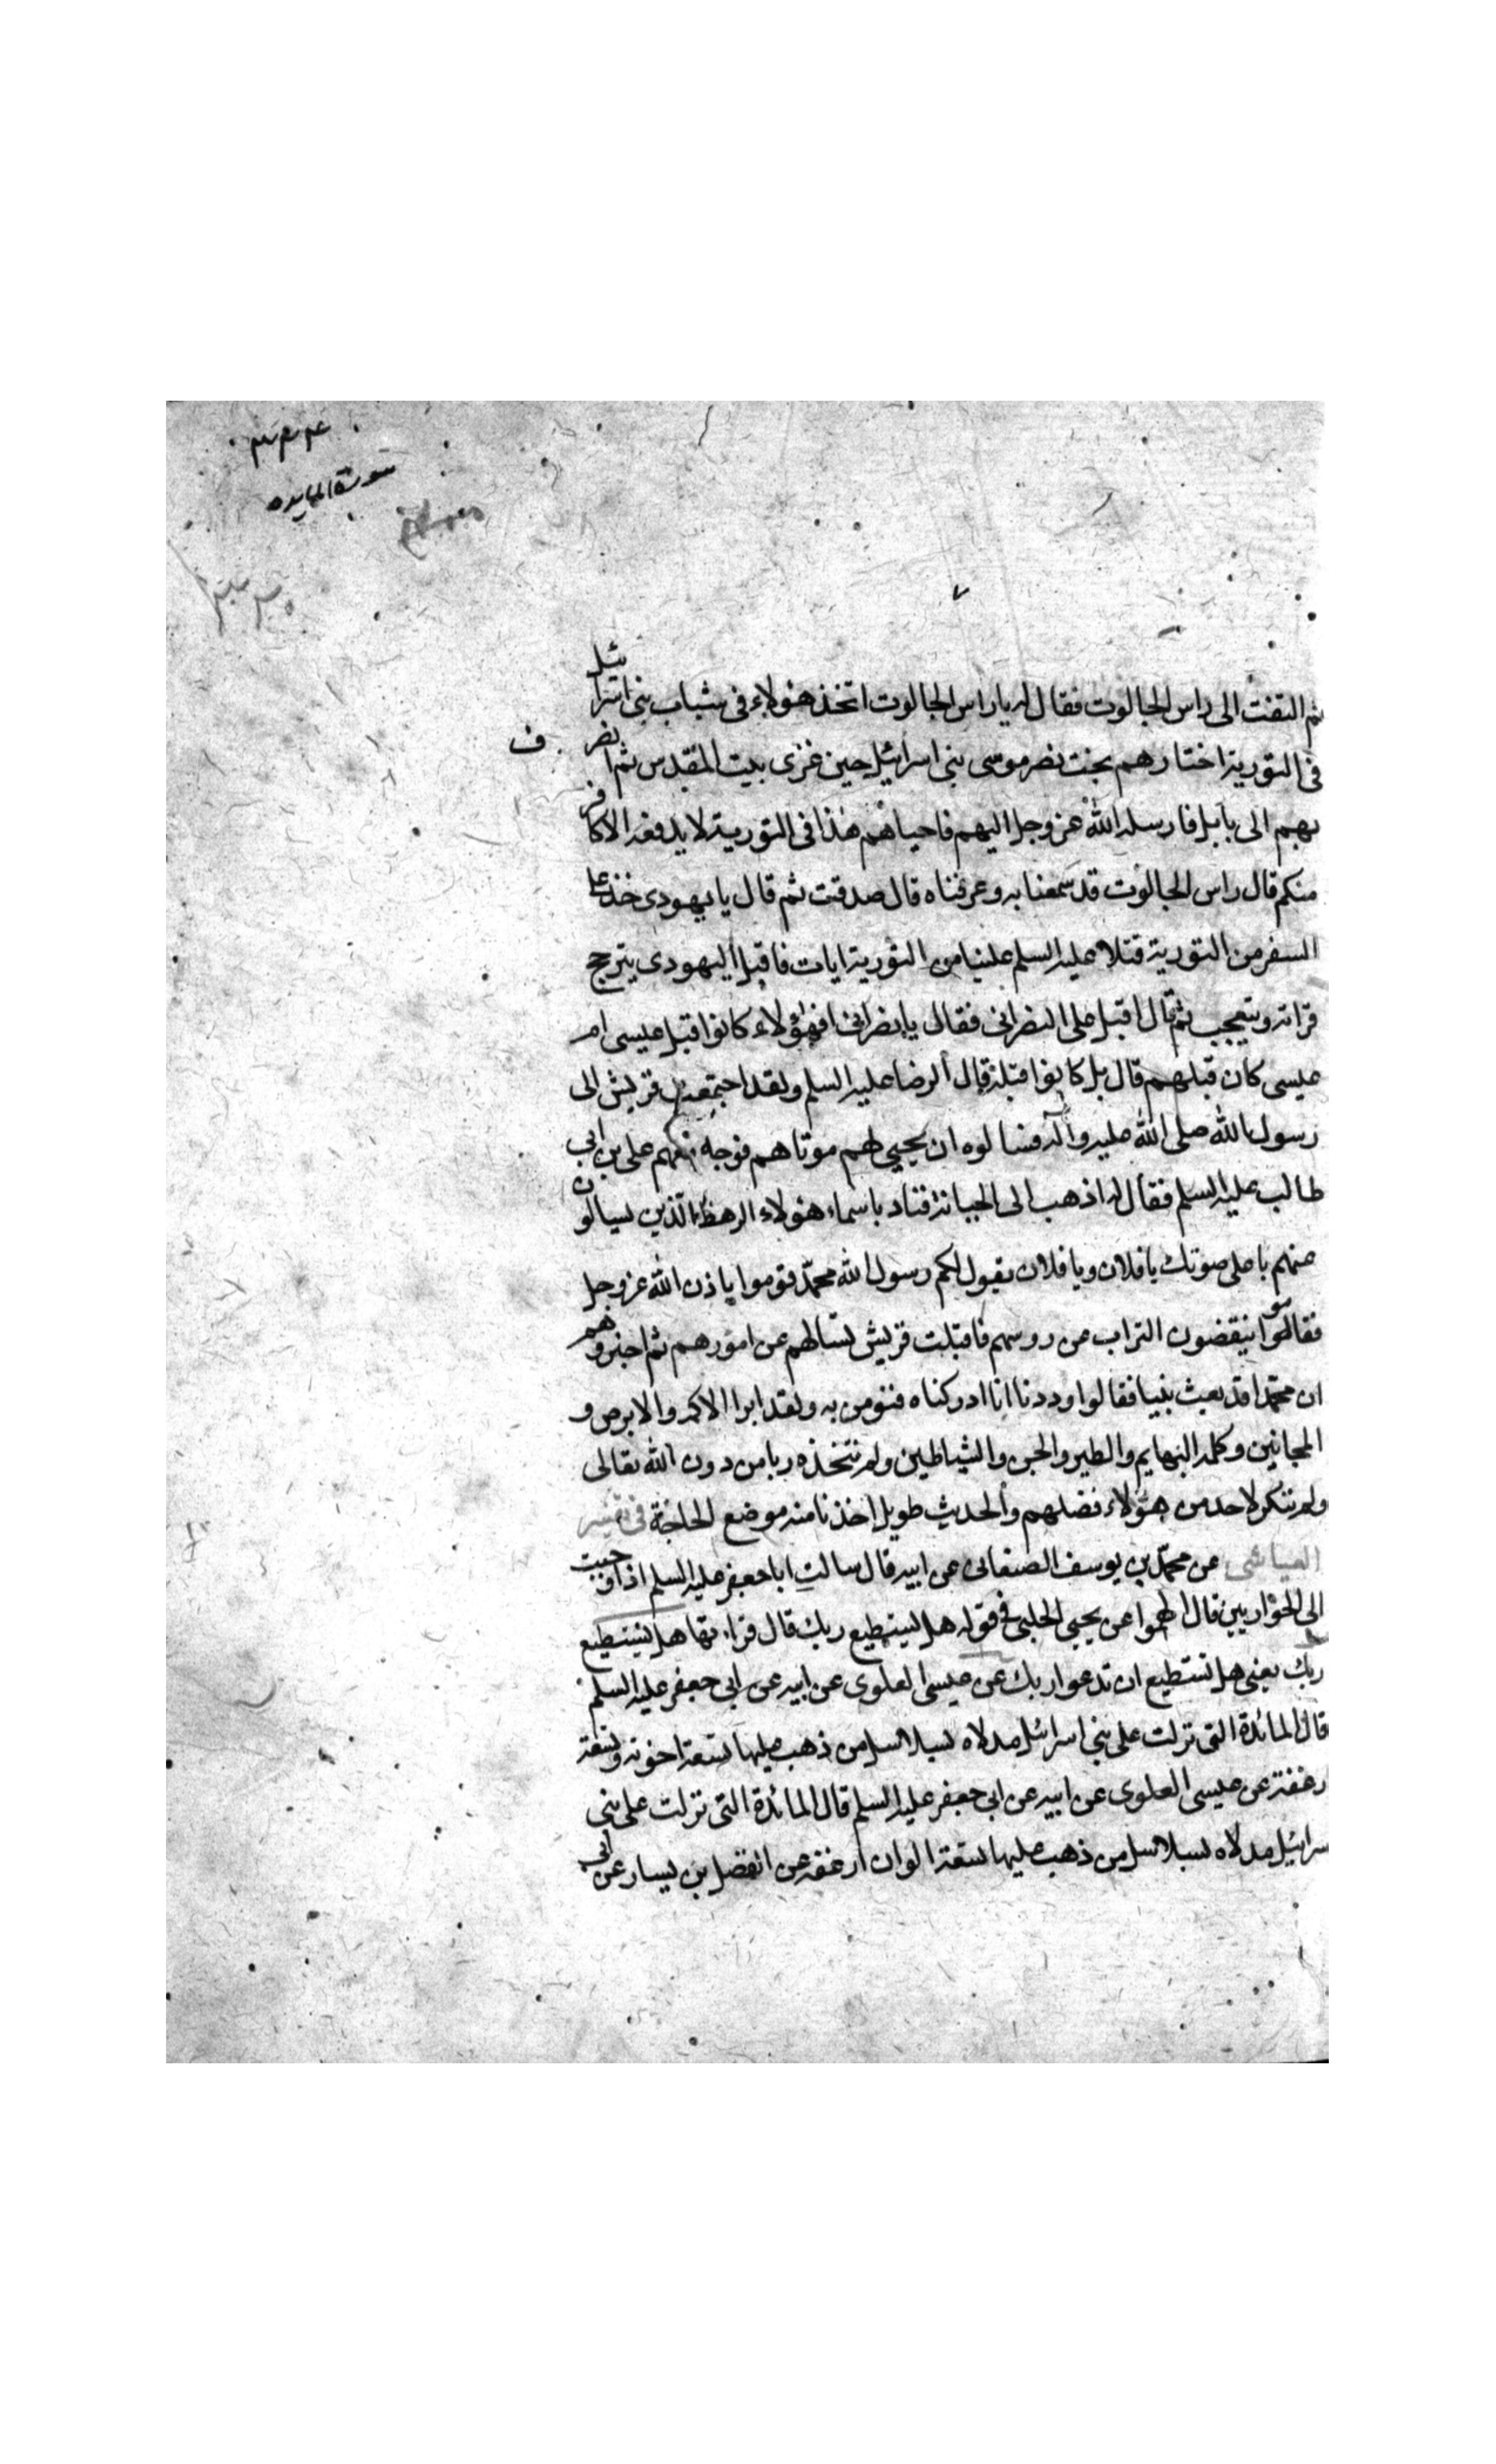 سورة المايده
ثم التفت الى راس الجالوت فقال له يا راس الجالوت اتخذ هؤلاء فى شباب بنى اسرائيل
فى التورية اختارهم بخت نصر موسى بنى اسرائيل حين غزى بيت المقدس ثم انصرف
بهم الى بابل فارسله الله عز وجل اليهم فاحياهم هذا فى التورية لا يدفعه الا كافر
منكم قال راس الجالوت قد سمعنا به وعرفناه قال صدقت ثم قال يا يهودى خذ على
السفر من التورية فتلا عليه السلم علينا من التورية ايات فاقبل اليهودى يترجج
قراته ويتعجب ثم قال اقبل على النصرانى فقال يا نصرانى افهؤلاء كانوا قبل عيسى ام
عيسى كان قبلهم قال بل كانوا قبله قال الرضا عليه السلم ولقد اجتمعت قريش الى
رسول الله صلى الله عليه وآله فسالوه ان يحيى لهم موتاهم فوجه معهم على بن ابى
طالب عليه السلم فقال له اذهب الى الجبانة فناد باسماء هؤلاء الرهط الذين يسالون
عنهم باعلى صوتك يا فلان ويا فلان يقول لكم رسول الله محمد قوموا باذن الله عز وجل
فقاموا ينقضون التراب من روسهم فاقبلت قريش تسالهم عن امورهم ثم اخبروهم
ان محمدا قد بعث نبيا فقالوا وددنا انا ادركناه فنؤمن به ولقد ابرا الاكمه والابرص و
المجانين وكلمه البهايم والطير والجن والشياطين ولم نتخذه ربا من دون الله تعالى
ولم ننكر لاحد من هؤلاء فضلهم والحديث طويل اخذنا منه موضع الحاجة فى تفسير
العياشى عن محمد بن يوسف الصنعانى عن ابيه قال سالت ابا جعفر عليه السلم اذ اوحيت
الى الحواريين قال الهموا عن يحيى الحلبى فى قوله هل يستطيع ربك قال قراءتها هل تستطيع
ربك يعنى هل تستطيع ان تدعوا ربك عن عيسى العلوى عن ابيه عن ابى جعفر عليه السلم
قال المائدة التى نزلت على بنى اسرائيل مدلاه بسلاسل من ذهب عليها تسعة اخونة وتسعة
ارغفة عن عيسى العلوى عن ابيه عن ابى جعفر عليه السلم قال المائدة التى نزلت على بنى
اسرائيل مدلاه بسلاسل من ذهب عليها تسعة الوان ارغفة عن الفضل بن يسار عن ابى